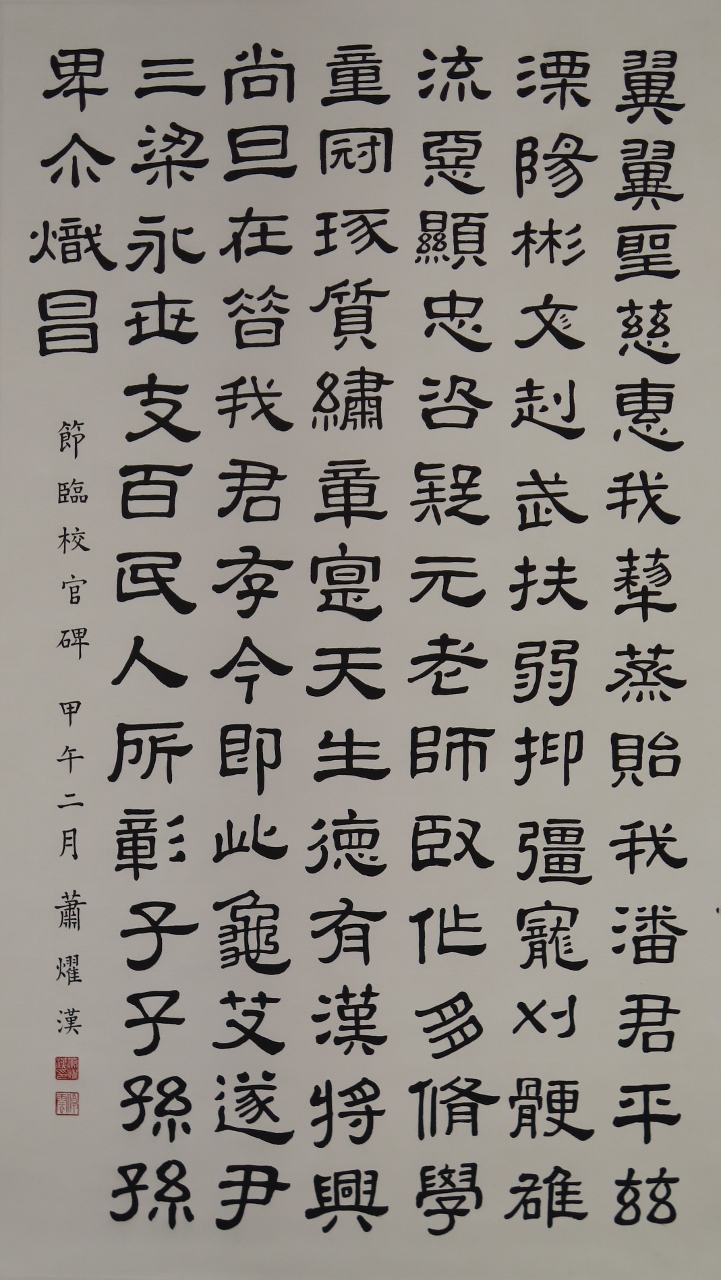 翼翼聖慈惠我犂蒸貽我潘君平玆
溧陽彬文赳武扶弱抑彊寵刈骾雄
流惡顯忠咨疑元老師臤作多脩學
童冠琢質繡章寔天生德有漢將興
尚旦在昔我君存今即此龜艾遂尹
三梁永世支百民人所彰子子孫孫
卑尒熾昌
節臨校官碑 甲午二月 蕭燿漢